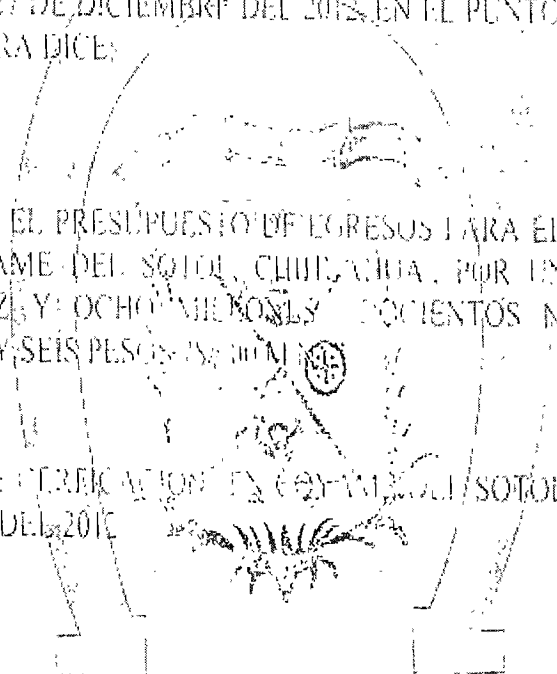 DE DICIEMBRE DEL 2012 EN EL PUNTO
RA DICE:
EL PRESUPUESTO DE EGRESOS PARA EL
AME DEL SOTOL, CHIHUAHUA, POR UN
Z Y OCHO MILLONES DOCIENTOS N
Y SEIS PESOS
CERFICACION EN SOTOL
DEL 2012